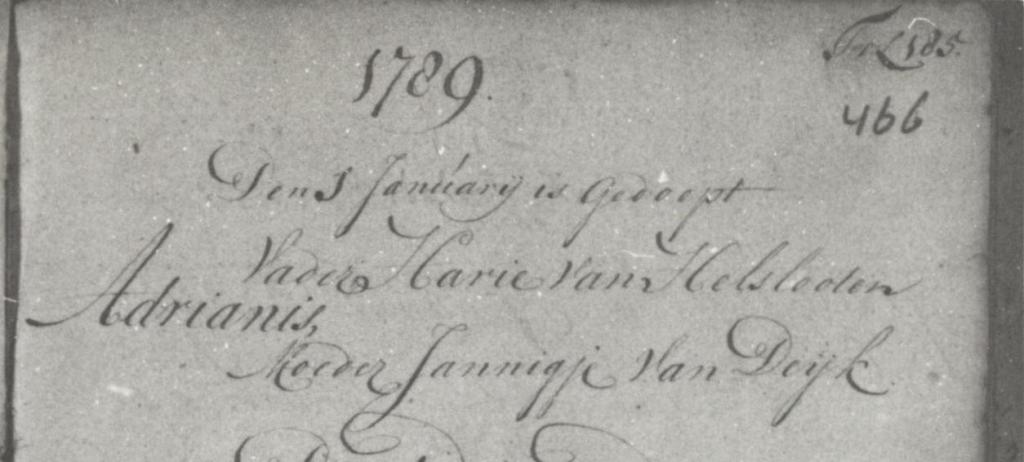 1789.
Tr L 185.
466
Den 1 January is Gedoept
Vader Harie Van Helslooten
Adrianis,
Moeder Jannigje Van Deijk